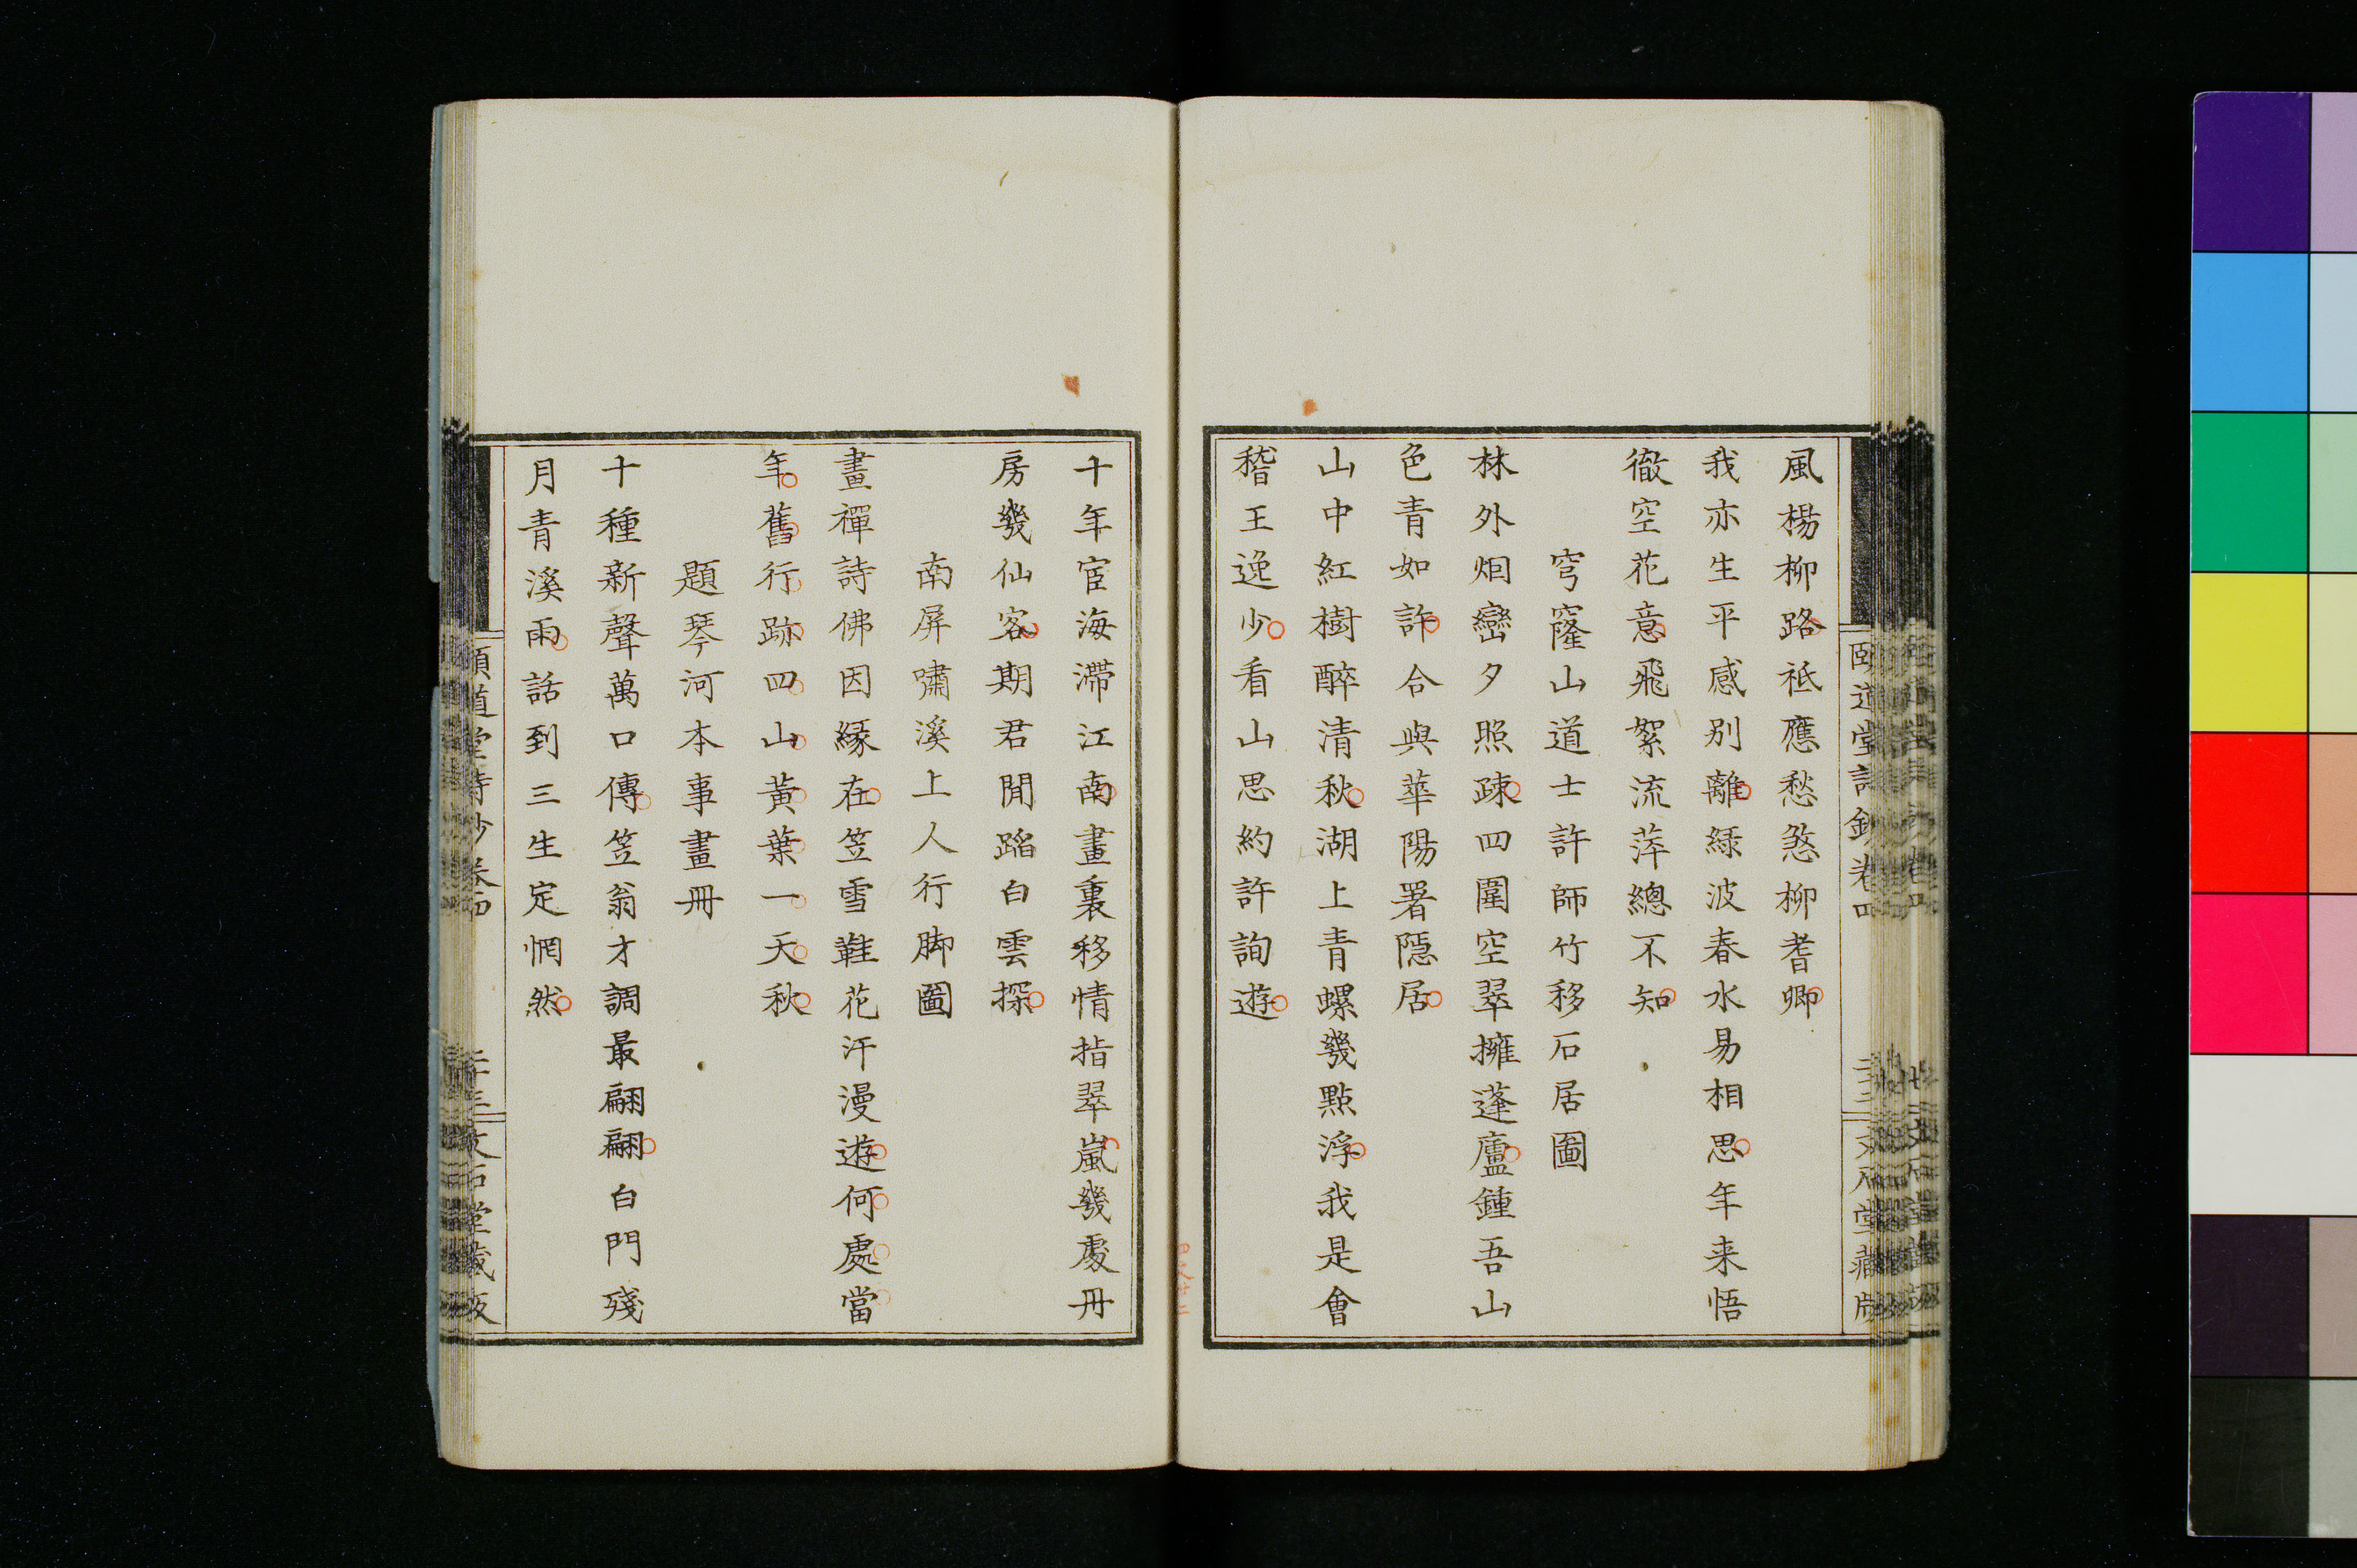 風楊柳路祗應愁煞柳耆卿
我亦生平感别離綠波春水易相思年来悟
徹空花意飛絮流萍總不知
穹窿山道士許師竹移石居圖
林外烟巒夕照疎四圍空翠擁蓬廬鍾吾山
色青如許合與華陽署隱居
山中紅樹醉清秋湖上青螺幾點浮我是會
稽王逸少看山思約許詢遊
十年宦海滯江南畫裏移情指翠嵐幾處丹
房幾仙客期君閒蹈白雲探
南屏嘯溪上人行脚圖
畫禪詩佛因緣在笠雪鞋花汗漫遊何處當
年舊行跡四山黃葉一天秋
題琴河本事畫冊
十種新聲萬口傳笠翁才調最翩翩白門殘
月青溪雨話到三生定惘然
頤道堂詩鈔卷四